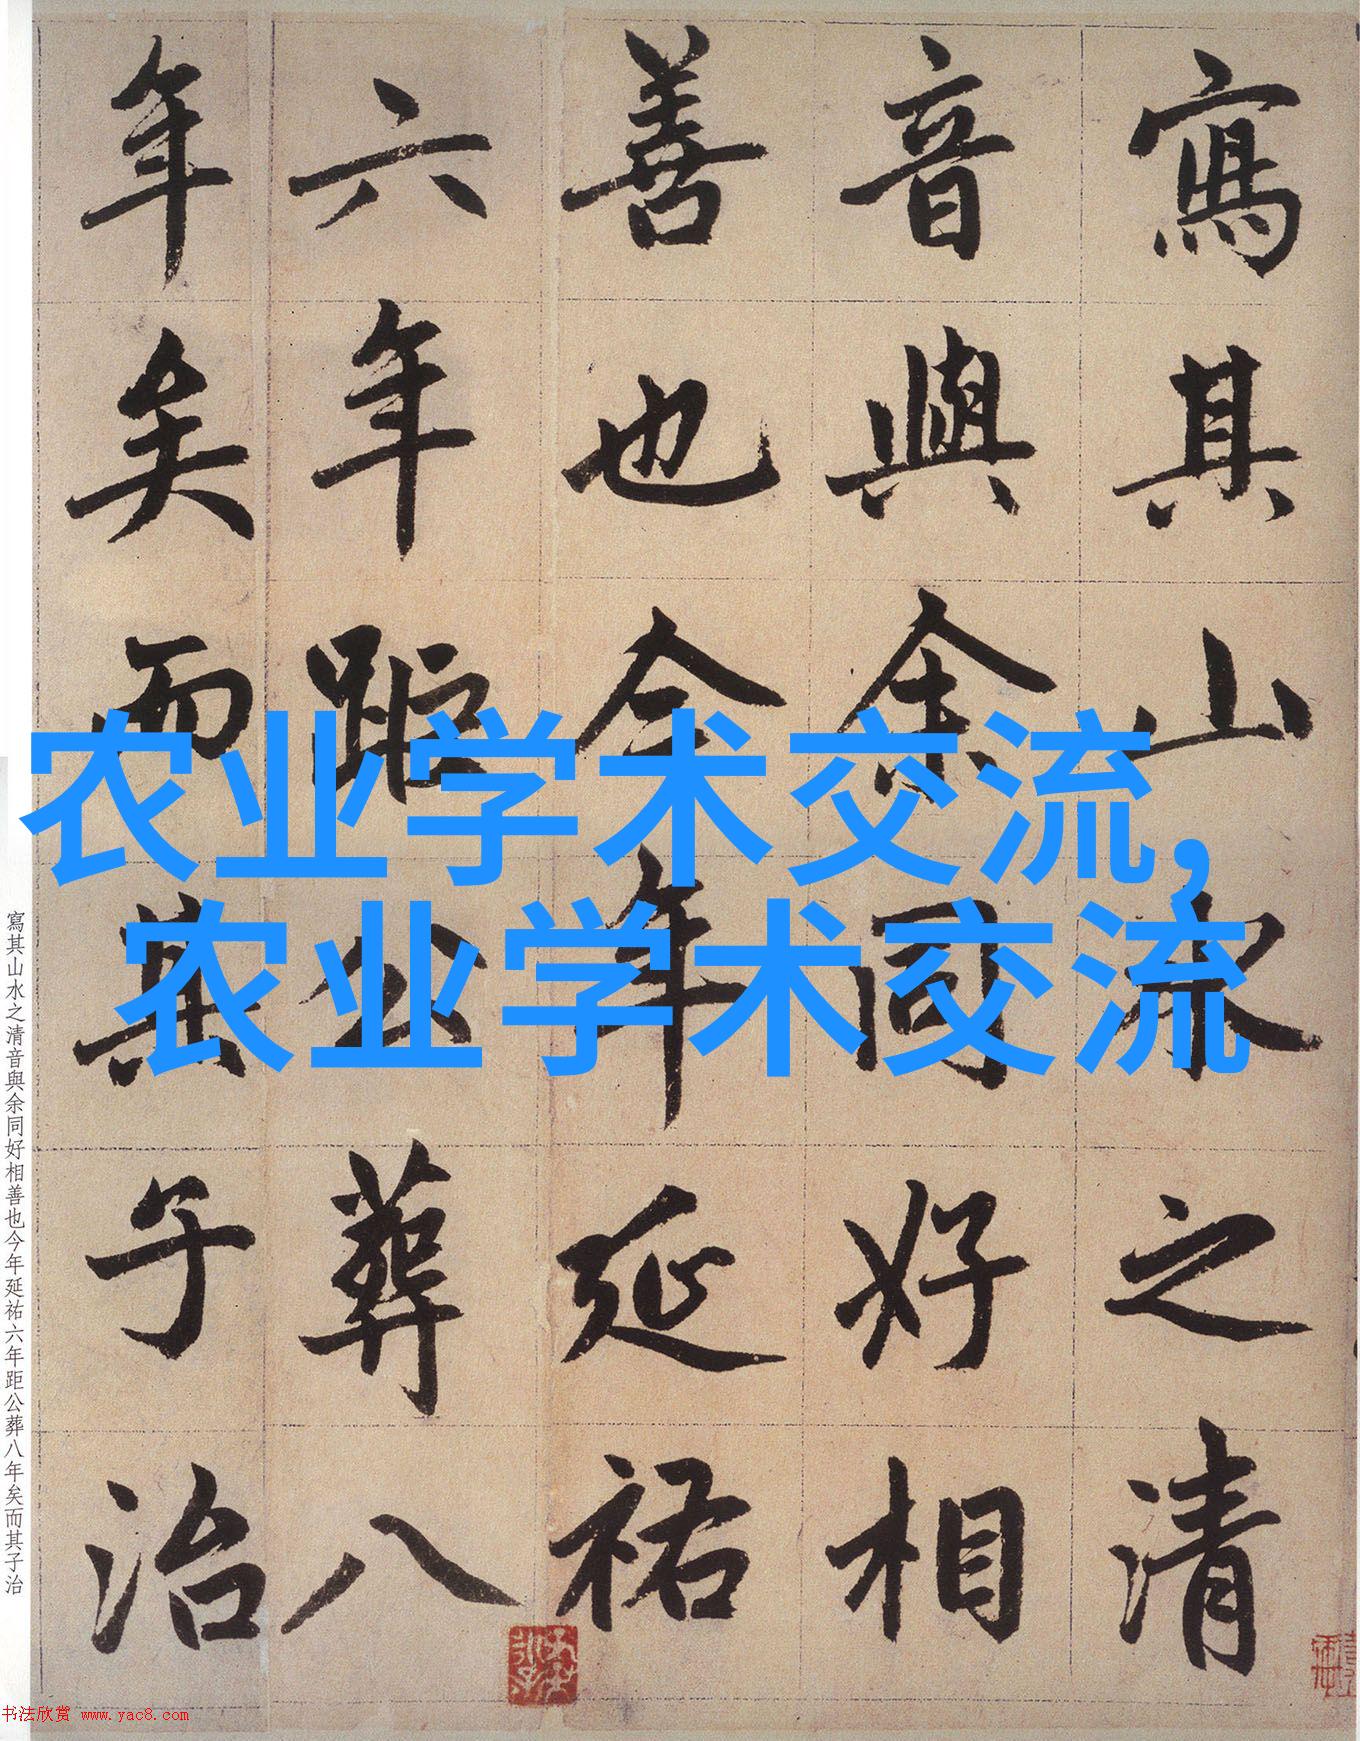 寫其山水之清
音與余同好相
善也今年延祐
六年距公葬八
年矣而其子治
农业学术交流,
农业学术交流
寫其山水之清音與余同好相善也今年延祐六年距公葬八年矣而其子治
书法欣赏 www.yac8.com